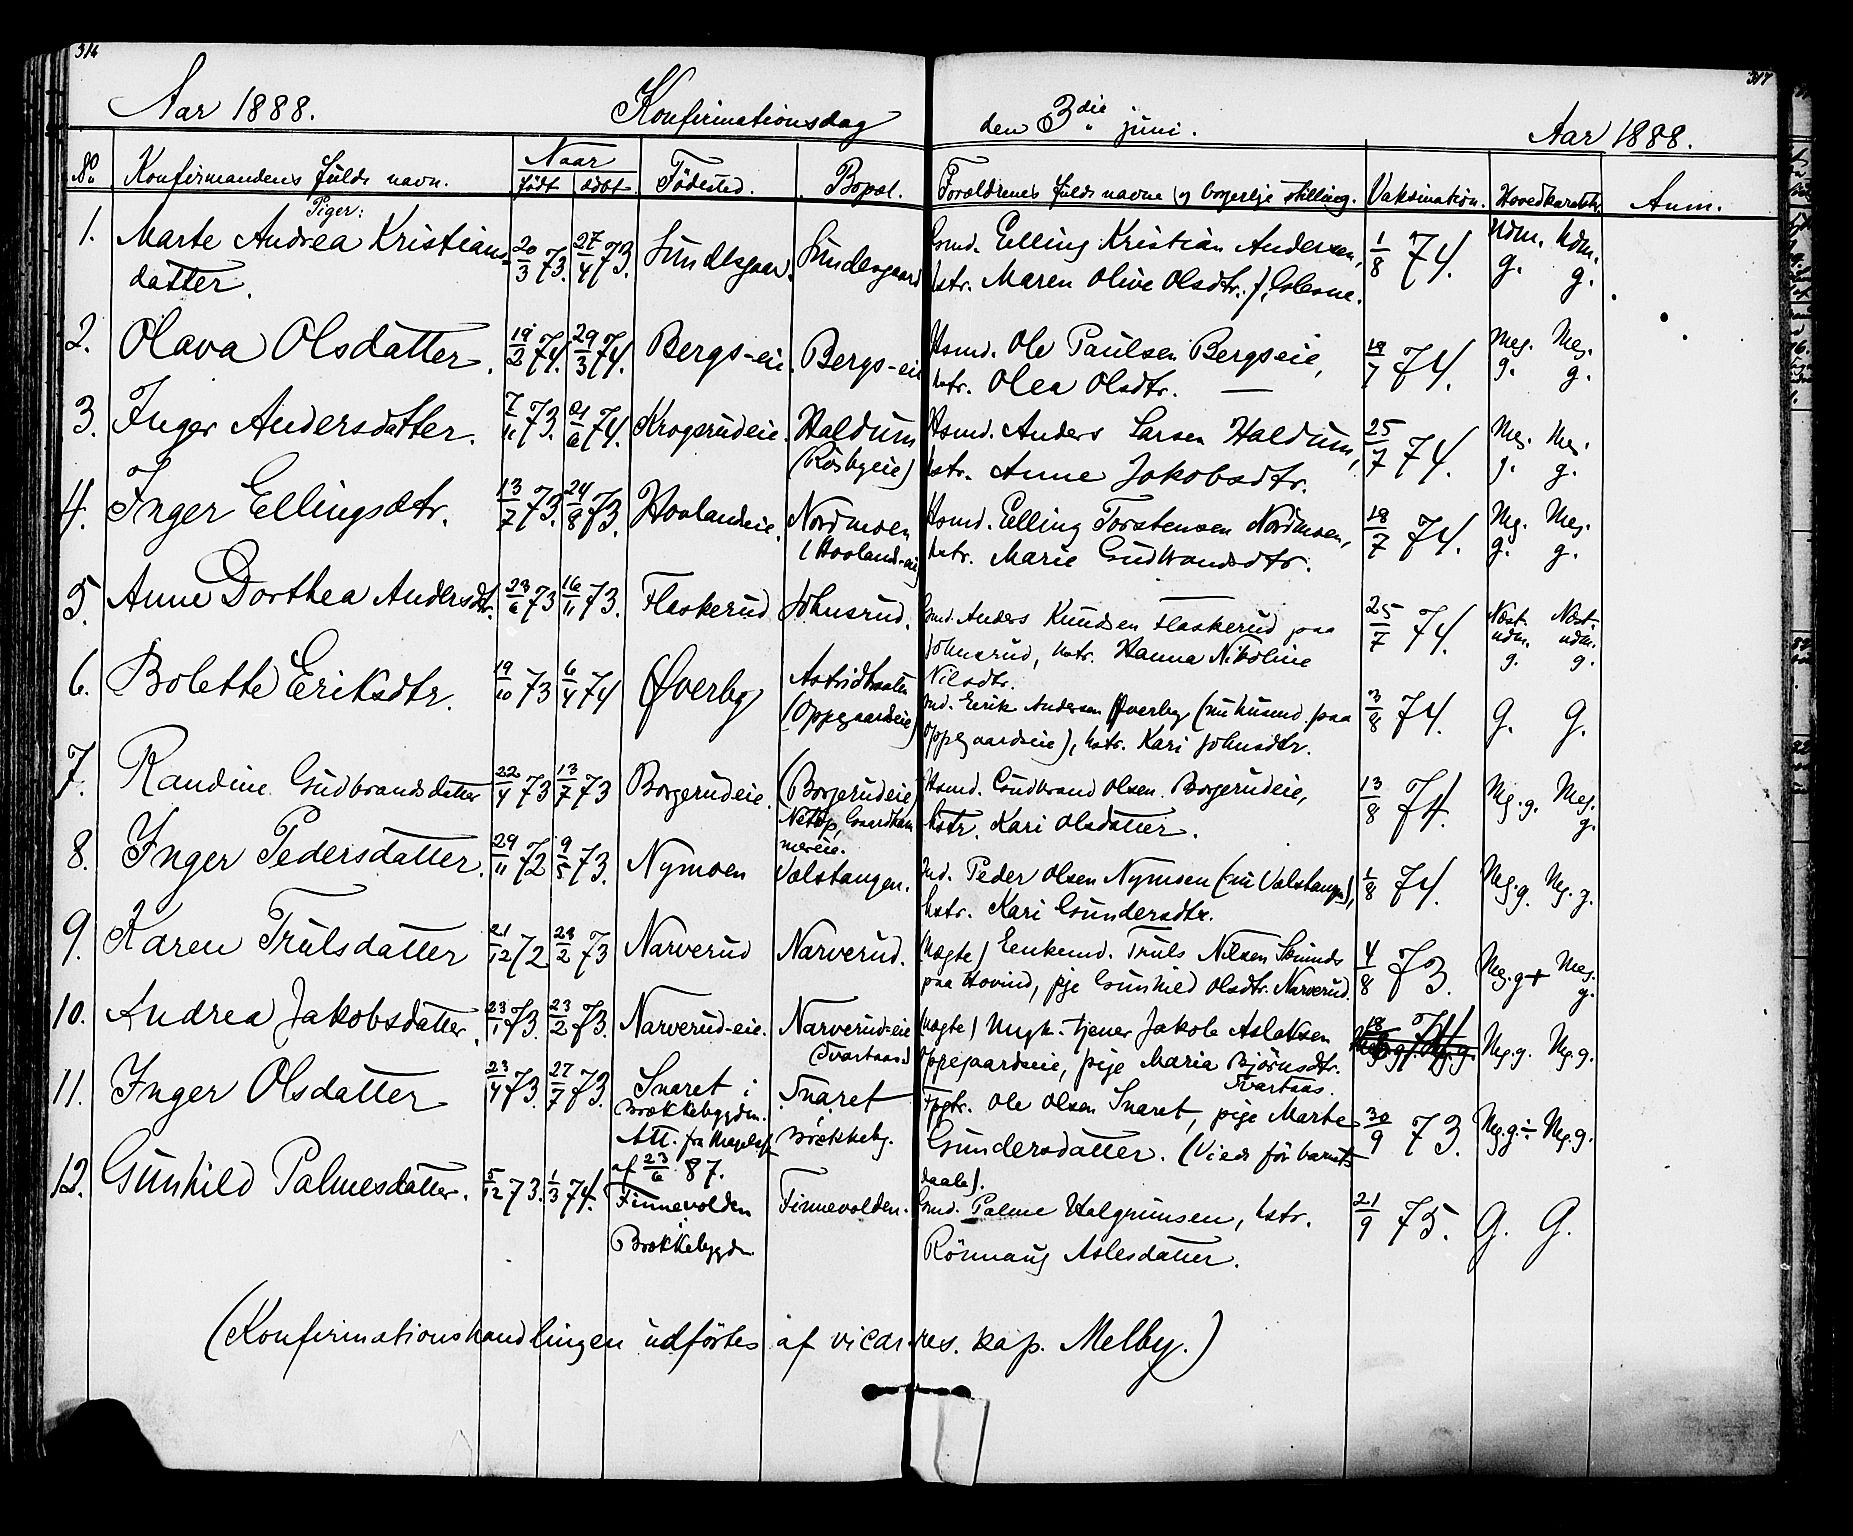 316
317
Aar 1888. Konfirmationsdag den 3die juni. Aar 1888.
No Konfirmandens fulde navn. Naar født døbt Fødested. Bopæl. Forældrenes fulde navne og borgerlige stilling. Vaksination. Hovedkarakter Anm.
Piger:
1. Marte Andrea Kristians- 20/3 73. 27/4 73. Sundesgaar. Gmd. Elling Kristian Andersen, 1/8 74. Udm. Udm.
datter. hstr. Maren Olive Olsdtr. g. g.
2. Olava Olsdatter. 19/2 74. 29/3 74. Bergs-eie. Bergs-eie Hsmd. Ole Paulsen Bergseie, 19/7 74. Meg. Meg.
hstr. Olea Olsdtr. — g. g.
3. Inger Andersdatter. 7/11 73. 21/6 74. Krogerudeie. Haldum Hsmd. Anders Larsen Haldum, 25/7 74. Meg. Meg.
(Røsbyeie) hstr. Anne Jakobsdtr. g. g.
4. Inger Ellingsdtr. 13/7 73. 24/8 73. Hovlandeie. Nordmoen Hsmd. Elling Torstensen Nordmoen, 18/7 74. Mg. Meg.
(Hovland-eie) hstr. Marie Gudbrandsdtr. g. g.
5. Anne Dorthea Andersdtr. 23/6 73 16/11 73. Flaskerud Johnsrud. Gmd. Anders Knudsen Flaskerud paa 25/7 74. Næst- Næst-
Johnsrud, hstr. Hanna Nikoline udm. udm.
Nilsdtr. g. g.
6. Bolette Eriksdtr. 19/10 73 6/4 74 Øverby Astridbraaten Erik Andersen Øverby (nu husmd. paa 3/8 74. G. G.
(Oppegaardeie) Oppegaardseie), hstr. Kari Johnsdtr.
7. Randine Gudbrandsdatter 22/4 73 13/7 73 Borgerudeie. (Borgerudeie) Hsmd. Gudbrand Olsen Borgerudeie, 13/8 74. Mg. g. Meg.
hstr. Kari Olsdatter. g.
8. Inger Pedersdatter. 29/11 72 9/5 73. Nymoen Valstangen. Peder Olsen Nymoen (nu Valstangen), 1/8 74. Mg. g. Mg. g.
hstr. Kari Gundersdtr.
9. Karen Trulsdatter 21/12 72 23/2 73 Narverud Narverud. (Uægte) Enkemd. Truls Nilsen 4/8 73. Meg. g+ Meg.
paa Hovind, pje Gunhild Olsdtr. Narverud. g.
10. Andrea Jakobsdatter. 23/1 73. 23/2 73. Narverud-eie. Narverud-eie (Uægte) Ungk. tjener Jakob Aslaksen Mg. g. Mg. g.
(Svartaas) Oppegaardseie, pige Maria Bjørnsdtr.
Svartaas.
11. Inger Olsdatter 23/4 73. 27/7 73. Snaret i Snaret Ole Olsen Snaret, pige Marte 30/9 73. Mg. g÷ Mg. g.
Brækkebygden. Brækkeb. Gundersdatter. (Viede før barnets
Att. fra af 23/6 87. daab).
12. Gunhild Palmesdatter. 5/12 73. 1/3 74. Finnevolden Finnevolden. Gmd. Palme Halgrimsen, hstr. 21/9 75. G. G.
Brækkebygden Rønnaug Aslesdatter.
(Konfirmationshandlingen udførtes af vicar. res. kap. Melby.)